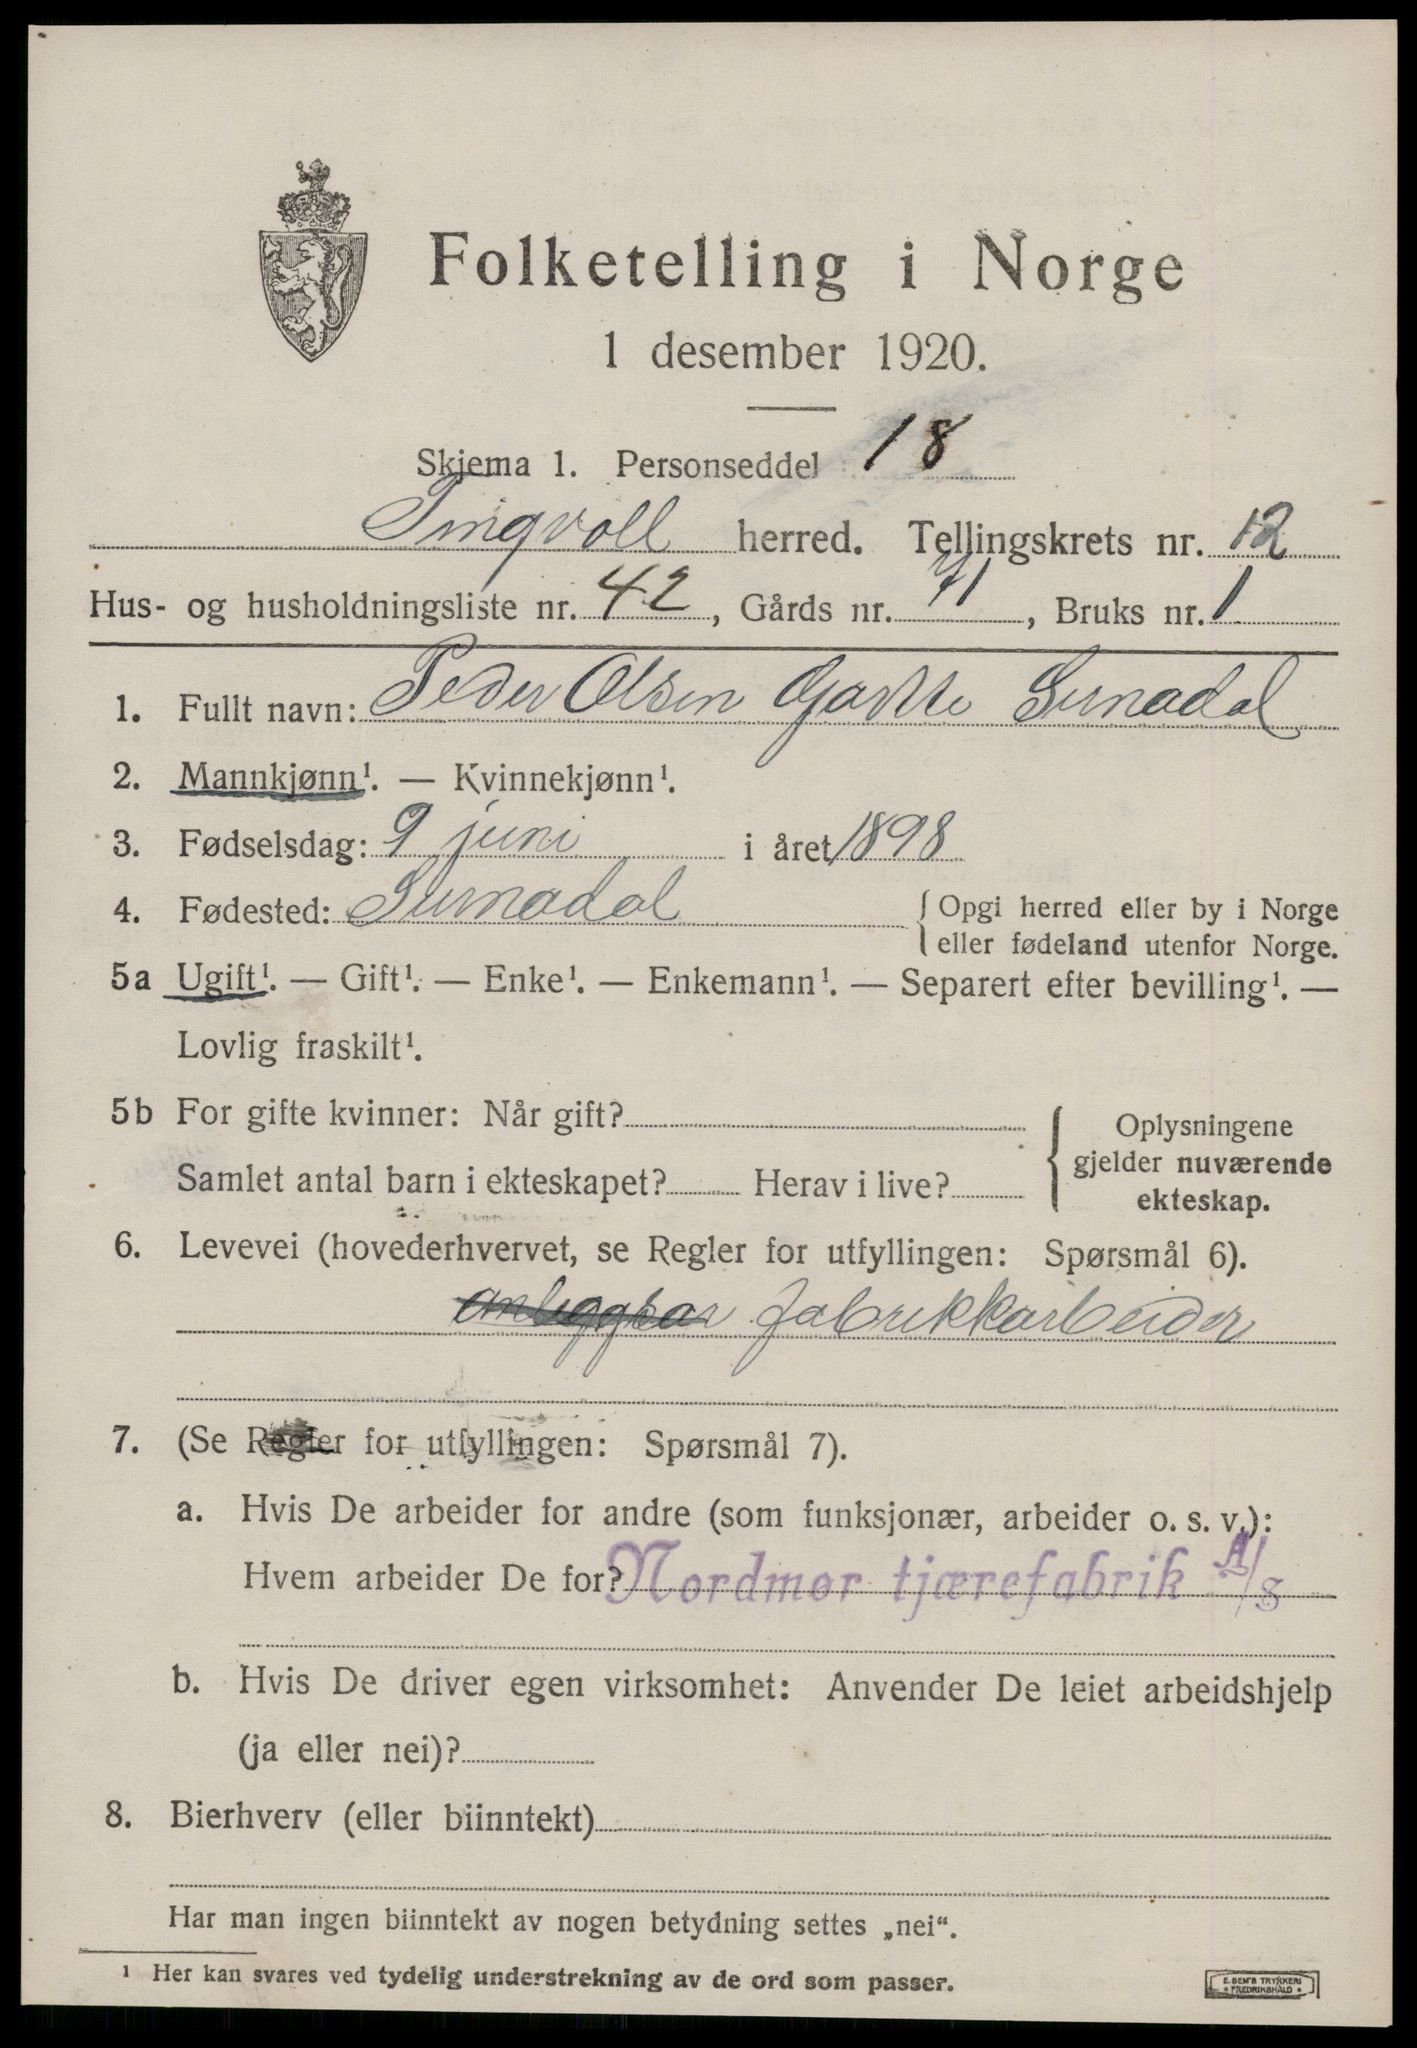 Folketelling i Norge
1 desember 1920.
Skjema 1. Personseddel 18
Tingvoll herred. Tellingskrets nr. 12
Hus- og husholdningsliste nr. 42, Gårds nr. 71, Bruks nr. 1
1. Fullt navn: Peder Olsen Surnadal
2. Mannkjønn¹. — Kvinnekjønn¹.
3. Fødselsdag: 9 juni i året 1898
4. Fødested: Surnadal { Opgi herred eller by i Norge
eller fødeland utenfor Norge.
5a Ugift¹. — Gift¹. — Enke¹. — Enkemann¹. — Separert efter bevilling¹. —
Lovlig fraskilt¹.
5b For gifte kvinner: Når gift?
Samlet antal barn i ekteskapet? Herav i live?
{ Oplysningene
gjelder nuværende
ekteskap.
6. Levevei (hovederhvervet, se Regler for utfyllingen: Spørsmål 6).
fabrikkarbeider
7. (Se Regler for utfyllingen: Spørsmål 7).
a. Hvis De arbeider for andre (som funksjonær, arbeider o. s. v.):
Hvem arbeider De for? Nordmør tjærefabrik A/S
b. Hvis De driver egen virksomhet: Anvender De leiet arbeidshjelp
(ja eller nei)?
8. Bierhverv (eller biinntekt)
Har man ingen biinntekt av nogen betydning settes „nei“.
¹ Her kan svares ved tydelig understrekning av de ord som passer.
E. SEM'S TRYKKERI
* FREDRIKSHALD *